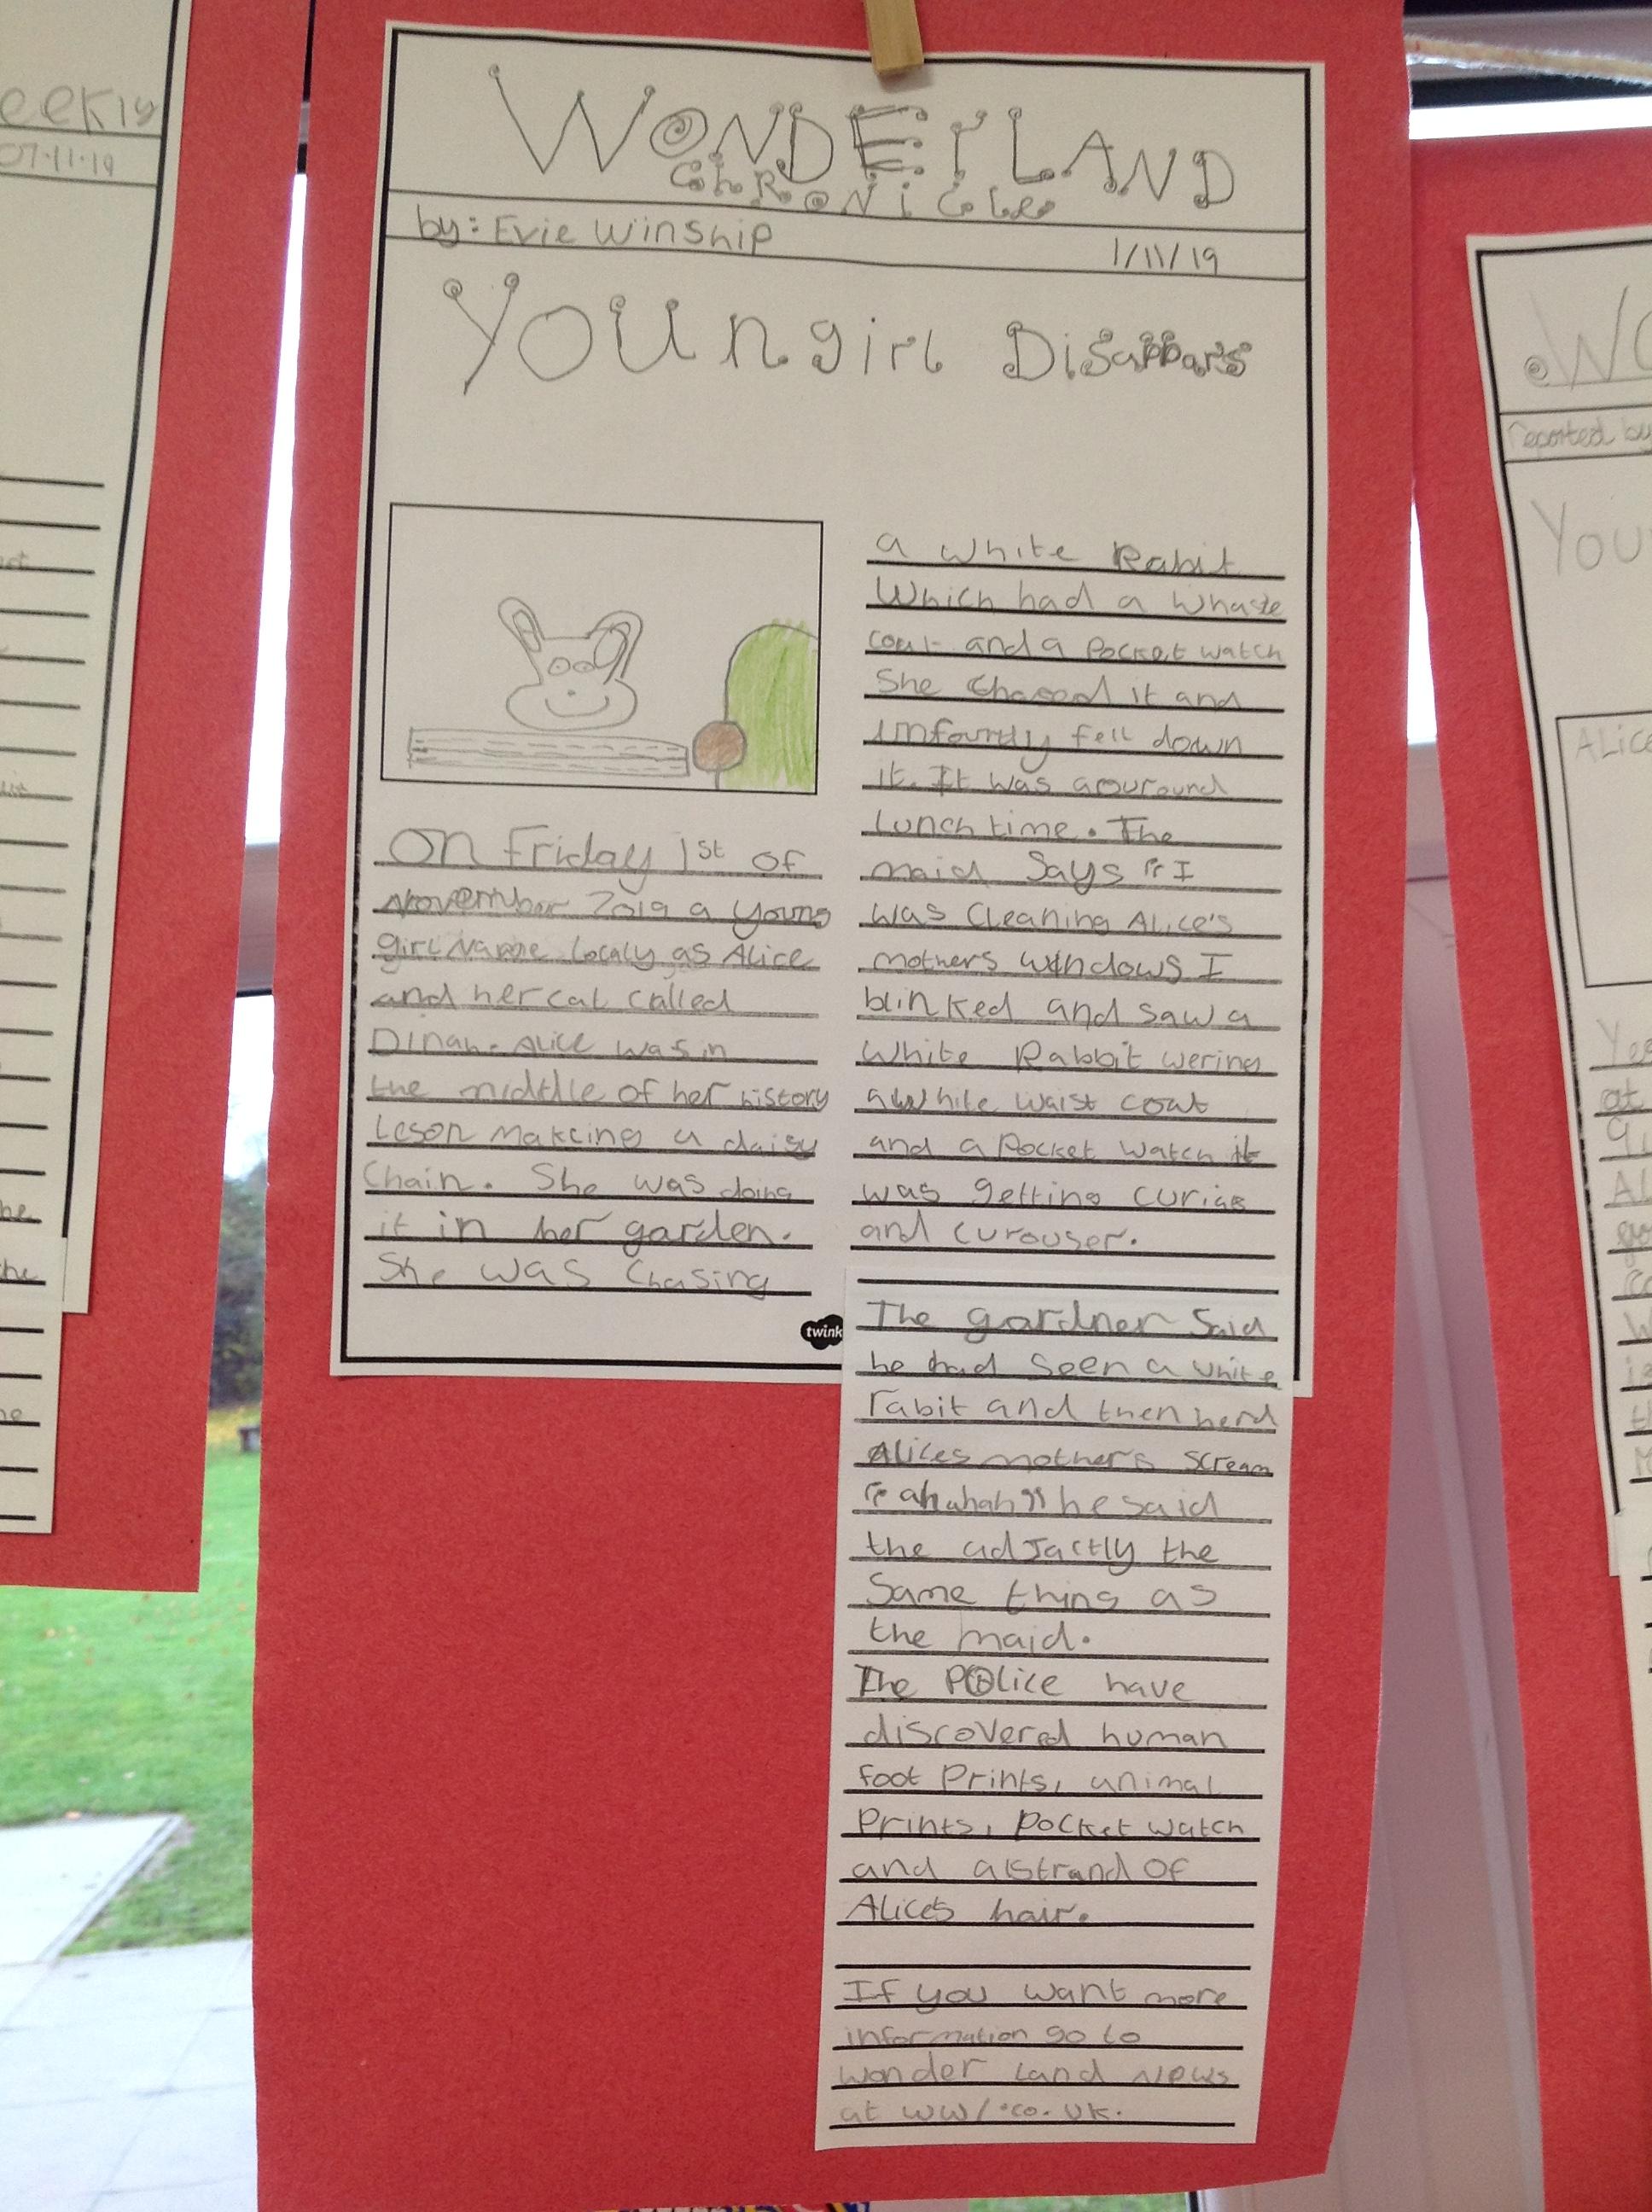 WONDErLAND
ChRONiCle
by: Evie Winship
1/11/19
YOUngirl Disappars
On Friday 1st of
November 2019 a young
girl Name localy as Alice
and her cat called
Dinah. Alice was in
the middle of her history
Leson makeing a daisy
Chain. She was doing
it in her garden.
She was Chasing
a white Rabit
Which had a whaste
coat and a Pocket watch
She Chased it and
unfourtly fell down
it. It was arouround
Lunch time. The
maid Says "I
was Cleaning ALice's
mothers windows I
blinked and saw a
White Rabbit wering
a white waist coat
and a Pocket watch it
was getting curius
and curouser.
twink
The gardner Said
he had seen a white
rabit and then herd
Alices mother's scream
" ahwhah" he said
the adjactly the
Same thing as
the maid.
The Police have
discovered human
foot Prints, animal
Prints, Pocket watch
and a strand of
Alice's hair.
If you want more
information go to
wonder Land News
at ww/.co.uk.
eekly
07.11.19
he
he
reported by
You
ALice
Yes
at